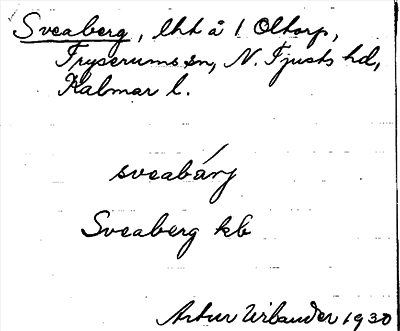 Sveaberg, lht å 1 Oltorp,
Tryserums sn, N. Tjusts hd,
Kalmar l.
sveabárj
Sveaberg kb
Artur Wirlander 1930